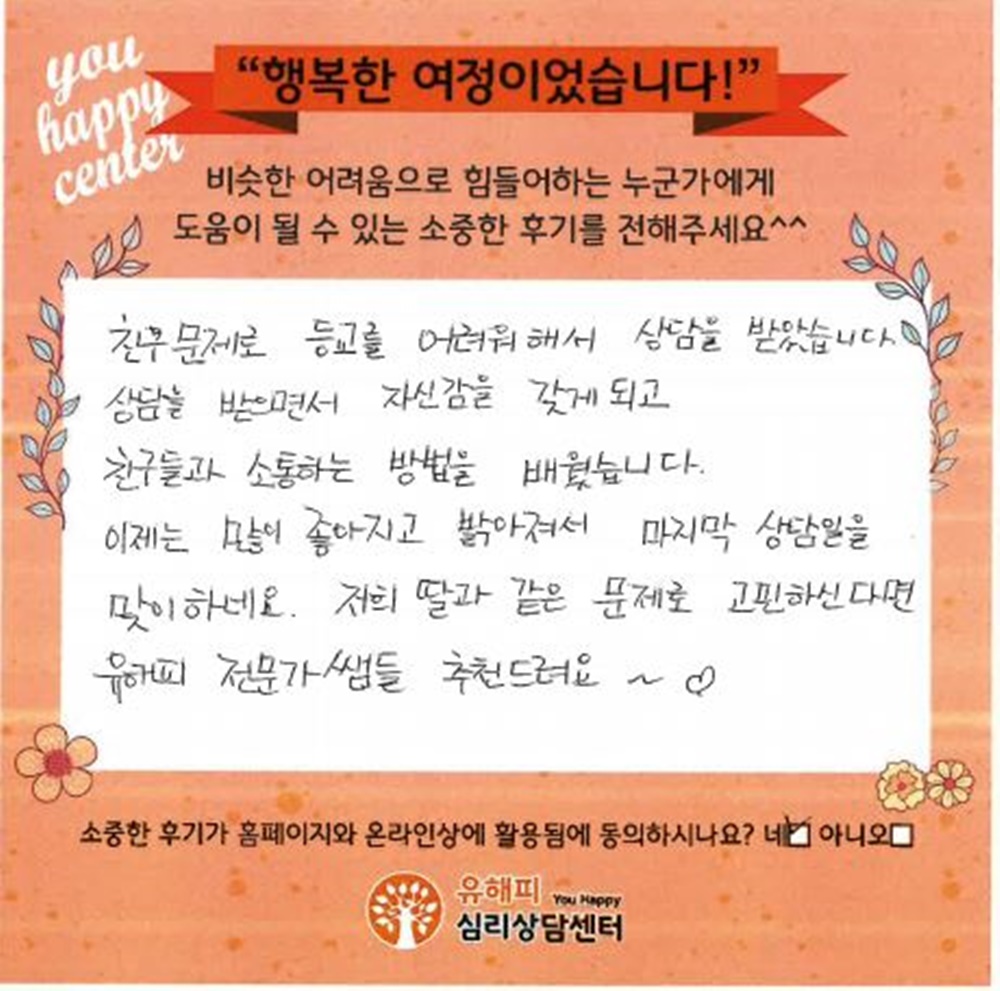 you
happy
center
“행복한 여정이었습니다!”
비슷한 어려움으로 힘들어하는 누군가에게
도움이 될 수 있는 소중한 후기를 전해주세요^^
친구 문제로 등교를 어려워 해서 상담을 받았습니다.
상담을 받으면서 자신감을 갖게 되고
친구들과 소통하는 방법을 배웠습니다.
이제는 많이 좋아지고 밝아져서 마지막 상담일을
맞이하네요. 저희 딸과 같은 문제로 고민하신다면
유해피 전문가 쌤들 추천드려요 ~ ♡
소중한 후기가 홈페이지와 온라인상에 활용됨에 동의하시나요? 네☑ 아니오☐
유해피 You Happy
심리상담센터